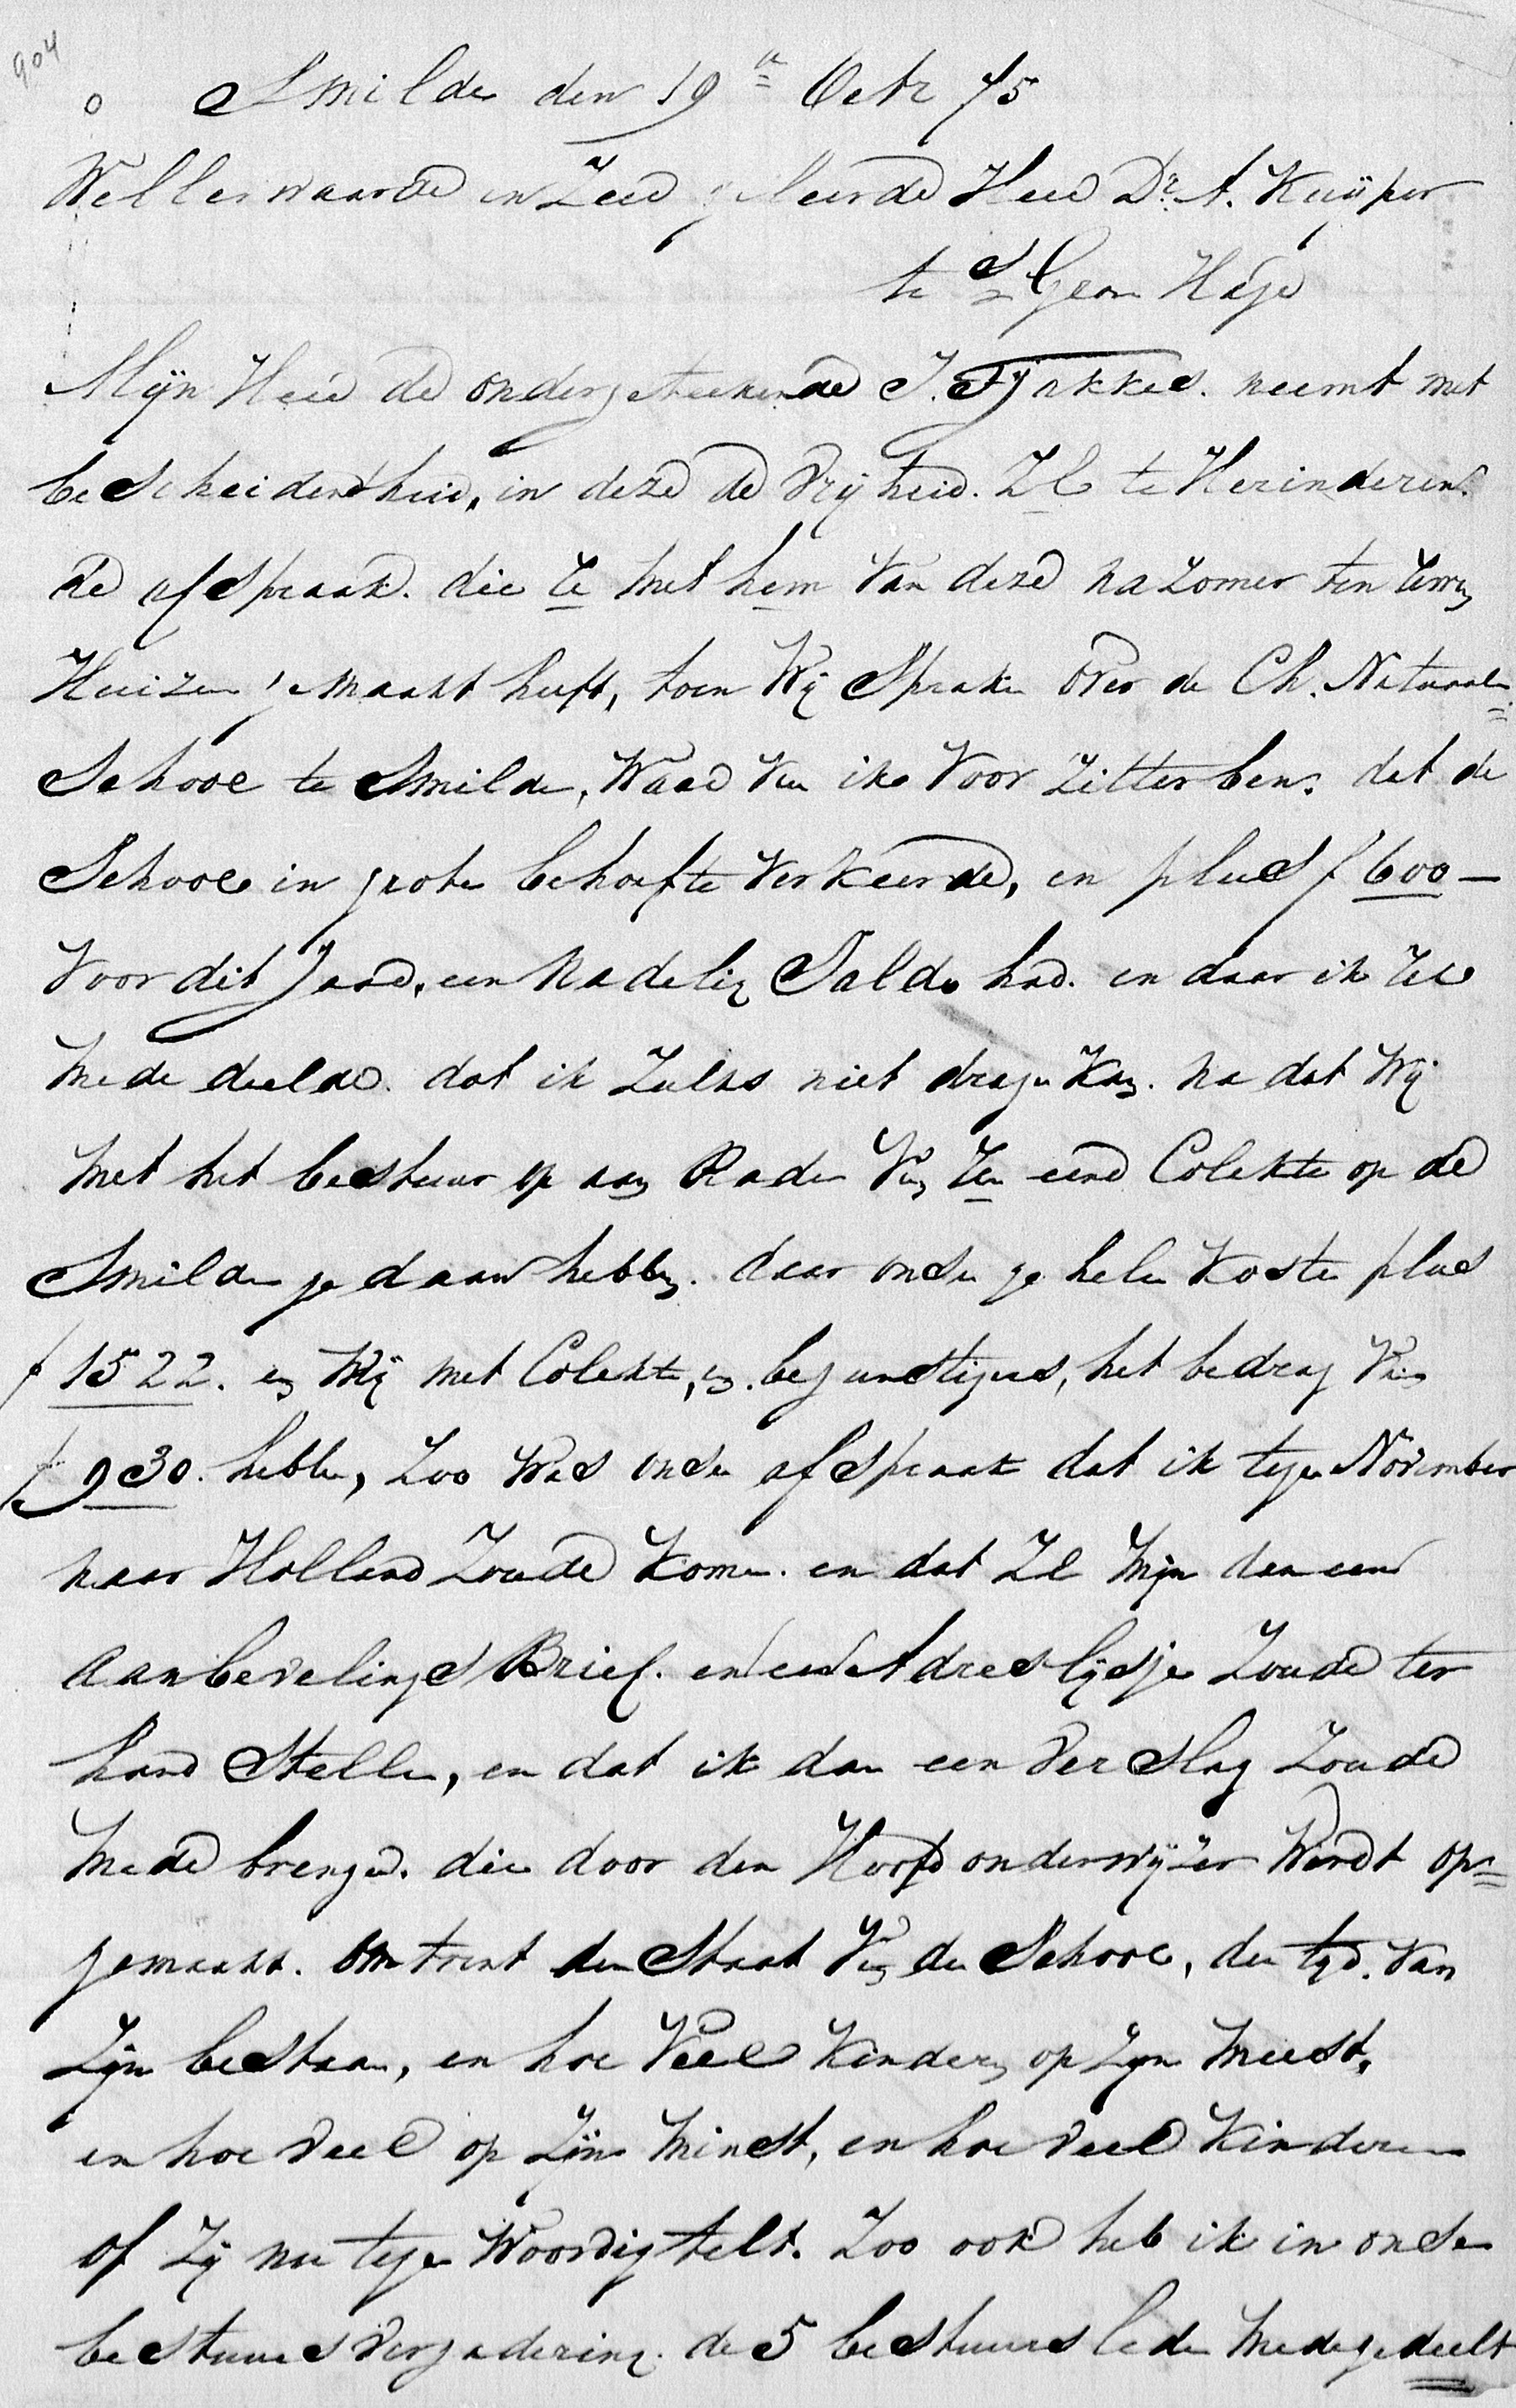 904
Smilde den 19e Octr 75
Weller waarde en Zeer geleerde Heer Dr. A. Kuijper
te s Graven Hage
Mijn Heer de ondergeteekende J. Tjakkes. neemt met
bescheidendheid, in deze de vrijheid. ZE te Herinderen
de afspraak. die U met hem van deze na zomer ten uwen
Huizen gemaakt heeft, toen Wij Spraken over de Ch. Nationale
School te Smilde, Waar van ik Voor zitter ben. dat de
School in grote behoefte Verkeerde, en plus f 600 —
Voor dit Jaar, een Nadelig Saldo had. en daar ik UE
mede deelde. dat ik Zulks niet dragen Kan. na dat Wij
met het bestuur op aan Raden Van Uw eene Colekte op de
Smilde gedaan hebben. daar onse gehele Koste plus
f 1522. en Wij met Colekte, en begunstigers, het bedrag Van
f 930. hebben, Zoo Was onse afspraak dat ik tegen November
naar Holland Zoude Komen. en dat ZE Mijn dan een
aanbevelings Brief. en een Adres lijsje Zoude ter
hand Stellen, en dat ik dan een verslag Zoude
mede brengen. die door den Hoofd onderwijzer Wordt op=
gemaakt. omtrent den Staat Van de School, den tyd. Van
Zijn bestaan, en hoe Veel Kinderen op Zyn Meest,
en hoe veel op Zijn Minst, en hoe veel Kinderen
of Zij nu tegen Woordig telt. Zoo ook heb ik in onse
bestuurs vergadering. de 5 bestuurs leden medegedeelt